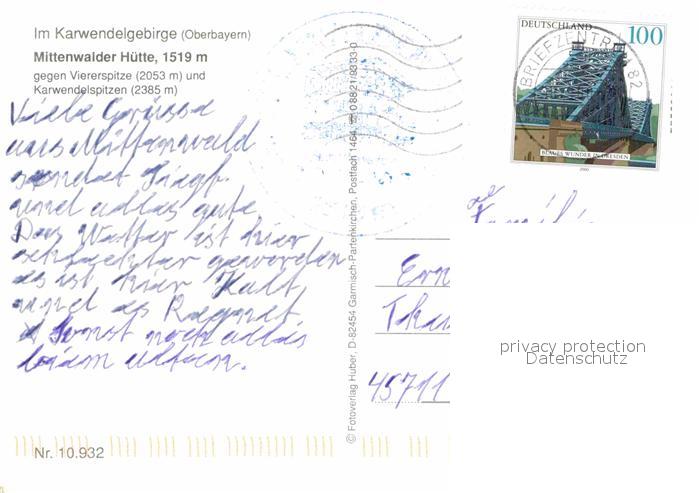 Im Karwendelgebirge (Oberbayern)
Mittenwalder Hütte, 1519 m
gegen Viererspitze (2053 m) und
Karwendelspitzen (2385 m)
Viele Grüsse
aus Mittenwald
sendet
und alles gute
Das Wetter ist hier
schlechter geworden
es ist hier Kalt,
und es Regnet
Sonst noch alles
beim altem.
Nr. 10.932
© Fotoverlag Huber, D-82454 Garmisch-Partenkirchen, Postfach 1464, ☎ 0 88 21/9333-0
DEUTSCHLAND 100
BLAUES WUNDER IN DRESDEN
2000
BRIEFZENTRUM 82
Famili
Ern
45711
privacy protection
Datenschutz